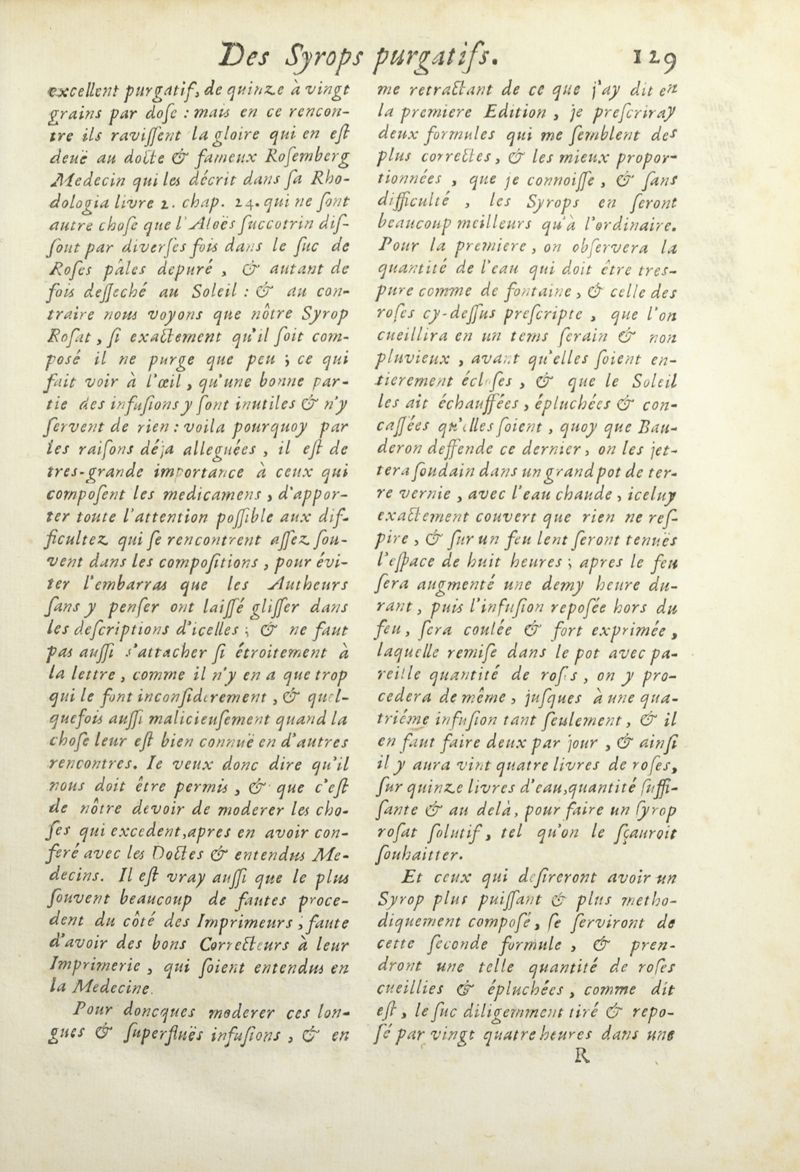 Des Syrops purgatifs. 129
excellent purgatif, de quinze à vingt
grains par dose : mais en ce rencon-
tre ils ravissent la gloire qui en est
deuë au docte & fameux Rosemberg
Medecin qui les décrit dans sa Rho-
dologia livre 2. chap. 24. qui ne sont
autre chose que l'Aloës succotrin dis-
sout par diverses fois dans le suc de
Roses pâles depuré , & autant de
fois desseché au Soleil : & au con-
traire nous voyons que nôtre Syrop
Rosat , si exactement qu'il soit com-
posé il ne purge que peu ; ce qui
fait voir à l'œil , qu'une bonne par-
tie des infusions y sont inutiles & n'y
servent de rien : voila pourquoy par
les raisons déja alleguées , il est de
tres-grande importance à ceux qui
composent les medicamens , d'appor-
ter toute l'attention possible aux dif-
ficultez qui se rencontrent assez sou-
vent dans les compositions , pour évi-
ter l'embarras que les Autheurs
sans y penser ont laissé glisser dans
les descriptions d'icelles ; & ne faut
pas aussi s'attacher si étroitement à
la lettre , comme il n'y en a que trop
qui le font inconsiderement , & quel-
quefois aussi malicieusement quand la
chose leur est bien connuë en d'autres
rencontres. Ie veux donc dire qu'il
nous doit être permis , & que c'est
de nôtre devoir de moderer les cho-
ses qui excedent,apres en avoir con-
feré avec les Doctes & entendus Me-
decins. Il est vray aussi que le plus
souvent beaucoup de fautes proce-
dent du côté des Imprimeurs , faute
d'avoir des bons Correcteurs à leur
Imprimerie , qui soient entendus en
la Medecine.
Pour doncques moderer ces lon-
gues & superfluës infusions , & en
me retractant de ce que j'ay dit en
la premiere Edition , je prescriray
deux formules qui me semblent des
plus correctes , & les mieux propor-
tionnées , que je connoisse , & sans
difficulté , les Syrops en seront
beaucoup meilleurs qu'à l'ordinaire.
Pour la premiere , on observera la
quantité de l'eau qui doit être tres-
pure comme de fontaine , & celle des
roses cy-dessus prescripte , que l'on
cueillira en un tems serain & non
pluvieux , avant qu'elles soient en-
tierement écloses , & que le Soleil
les ait échauffées , épluchées & con-
cassées qu'elles soient , quoy que Bau-
deron deffende ce dernier , on les jet-
tera soudain dans un grand pot de ter-
re vernie , avec l'eau chaude , iceluy
exactement couvert que rien ne res-
pire , & sur un feu lent seront tenuës
l'espace de huit heures ; apres le feu
sera augmenté une demy heure du-
rant , puis l'infusion reposée hors du
feu , sera coulée & fort exprimée ,
laquelle remise dans le pot avec pa-
reille quantité de roses , on y pro-
cedera de même , jusques à une qua-
triéme infusion tant seulement , & il
en faut faire deux par jour , & ainsi
il y aura vint quatre livres de roses,
sur quinze livres d'eau,quantité suffi-
sante & au delà , pour faire un syrop
rosat solutif , tel qu'on le sçauroit
souhaitter.
Et ceux qui desireront avoir un
Syrop plus puissant & plus metho-
diquement composé , se serviront de
cette seconde formule , & pren-
dront une telle quantité de roses
cueillies & épluchées , comme dit
est , le suc diligemment tiré & repo-
sé par vingt quatre heures dans une
R